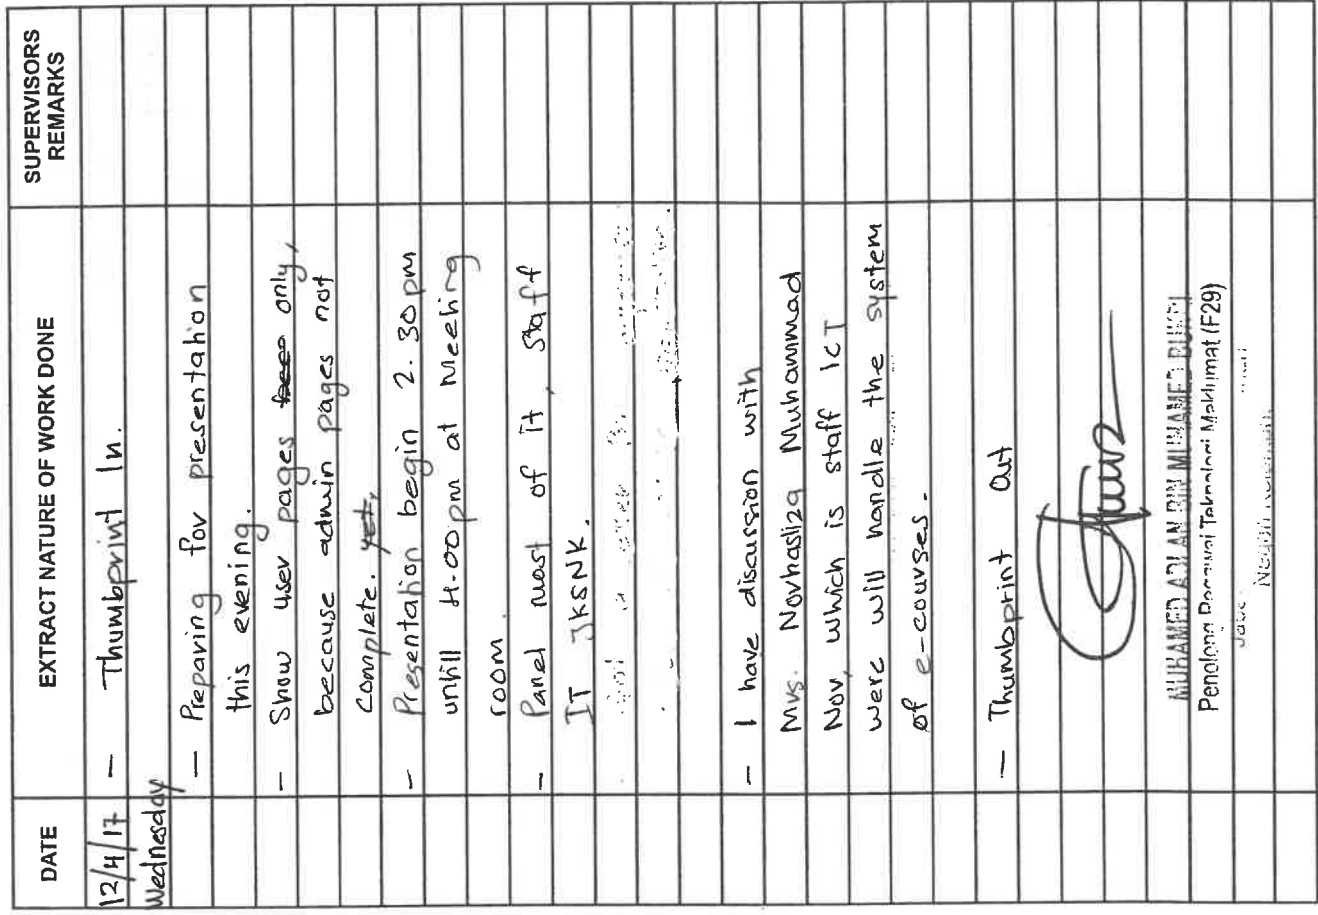 DATE
EXTRACT NATURE OF WORK DONE
SUPERVISORS
REMARKS
12/4/17 - Thumbprint In.
Wednesday
- Preparing for presentation
this evening.
- Show user pages only,
because admin pages not
complete. yet.
- Presentation begin 2.30pm
untill 4.00pm at Meeting
room.
- Panel most of it, staff
IT JKSNK.
- I have discussion with
Mrs. Norhasliza Muhammad
Nor, which is staff ICT
were will handle the system
of e-courses.
- Thumbprint Out
Penolong Pegawai Teknologi Maklumat (F29)